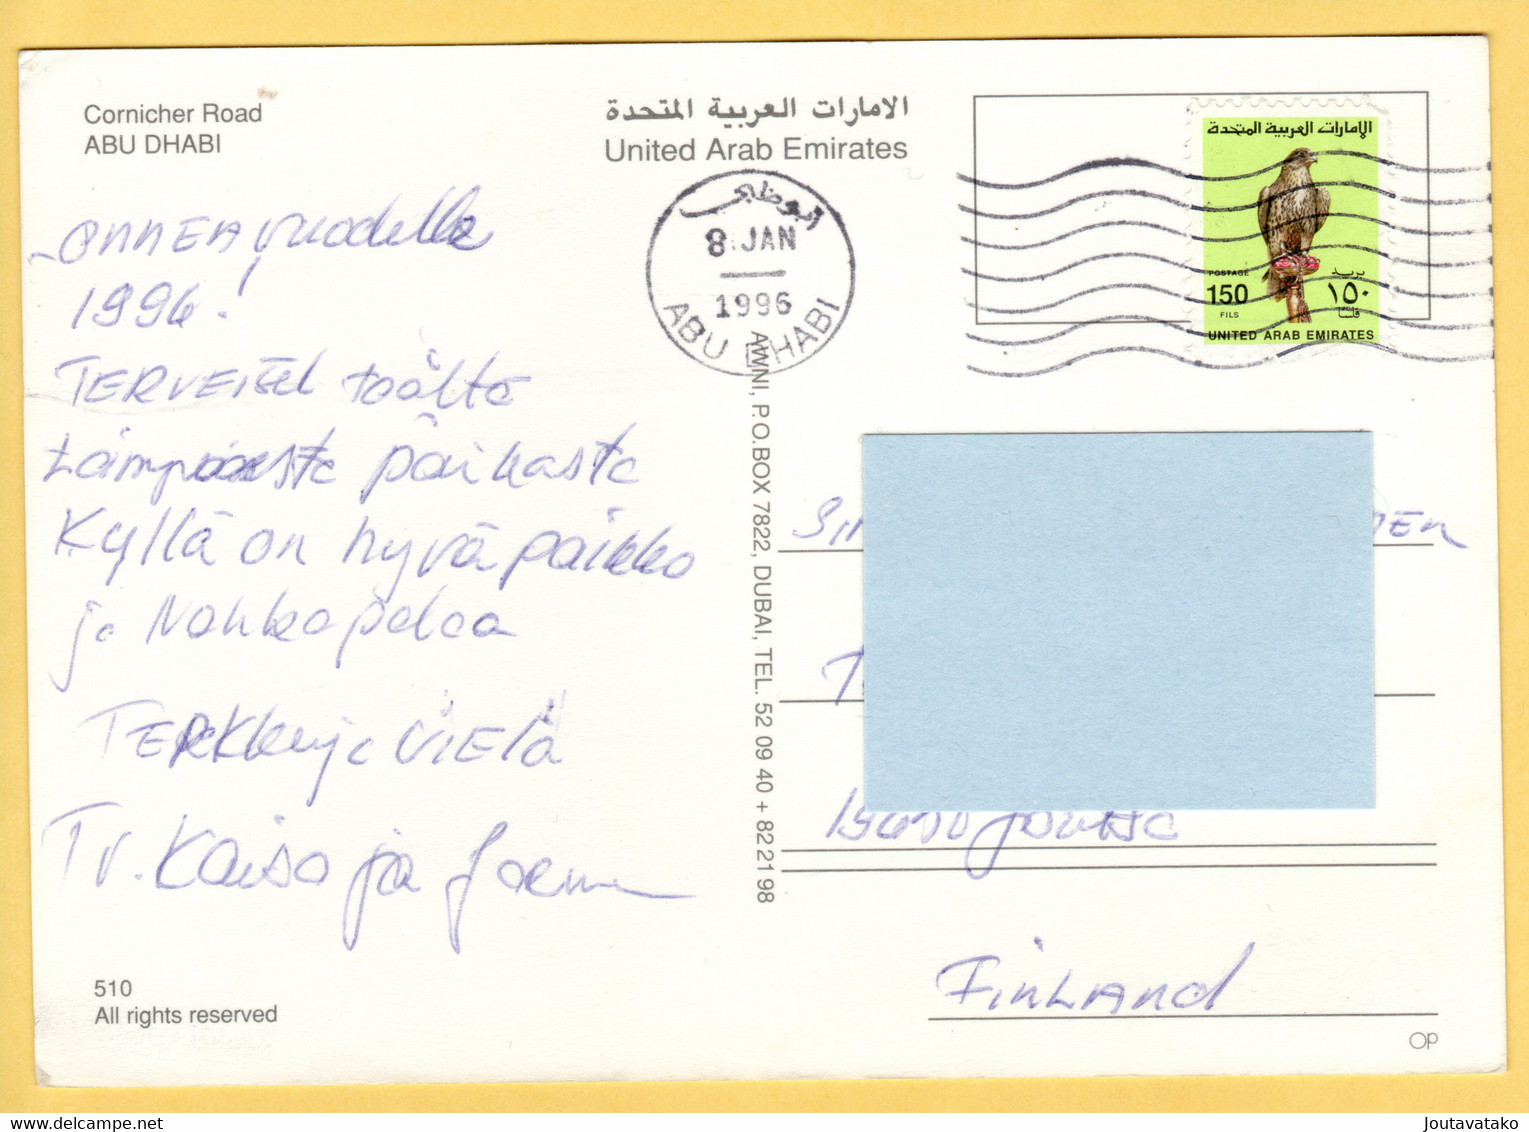 Cornicher Road
ABU DHABI
الامارات العربية المتحدة
United Arab Emirates
ابوظبي
8 JAN
1996
ABU DHABI
الإمارات العربية المتحدة
POSTAGE بريد
150 ١٥٠
FILS فلسا
UNITED ARAB EMIRATES
ONNEA vuodelle
1996!
TERVEISET täältä
Lämpöisestä paikasta
Kyllä on hyvä paikka
ja Nahkapalaa
TERKkuja VIELÄ
Tv. Kaisa ja Jorma
AWNI, P.O.BOX 7822, DUBAI, TEL. 52 09 40 + 82 21 98
19650 Joutsa
FINLAND
510
All rights reserved
OP
Joutavatako